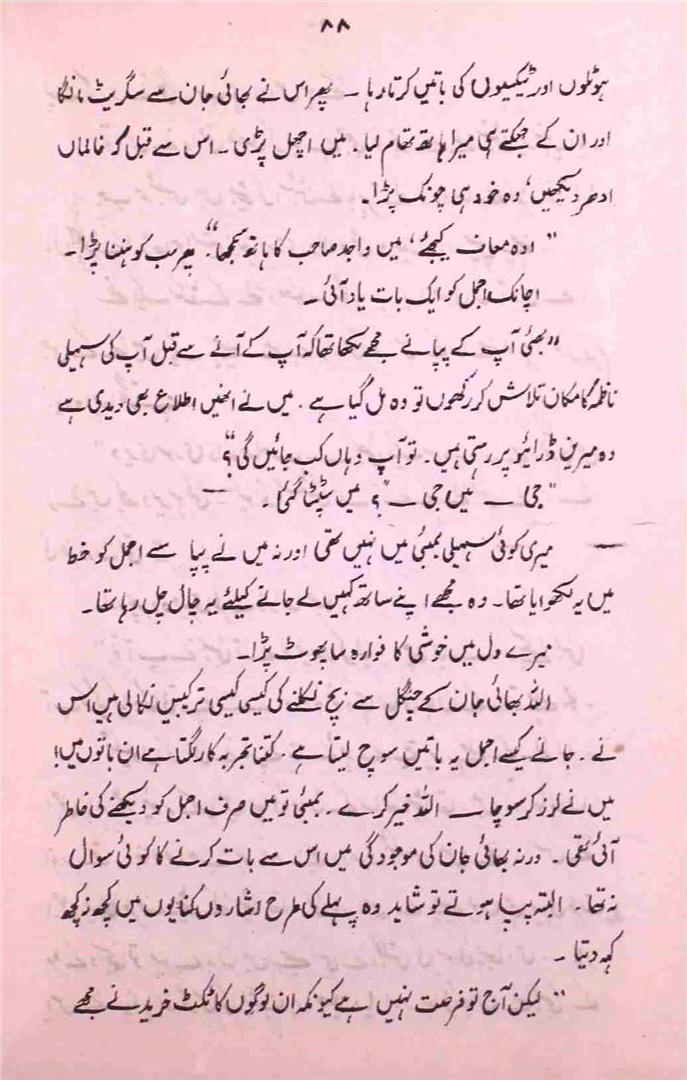 ۸۸
ہوٹلوں اور ٹیکسیوں کی باتیں کرتا رہا ۔ پھر اس نے بھائی جان سے سگریٹ مانگا
اور ان کے جھکتے ہی میرا ہاتھ تھام لیا ۔ میں اچھل پڑی ۔ اس سے قبل کہ خالہ ماں
ادھر دیکھیں ، وہ خود ہی چونک پڑا ۔
" اوہ معاف کیجئے ، میں واجد صاحب کا ہاتھ سمجھا " ۔ پھر سب کو ہنسنا پڑا ۔
اچانک اجمل کو ایک بات یاد آئی ۔
" بھئی آپ کے پپا نے مجھے لکھا تھا کہ آپ کے آنے سے قبل آپ کی سہیلی
ناظمہ کا مکان تلاش کر رکھوں تو وہ مل گیا ہے ۔ میں نے انھیں اطلاع بھی دیدی ہے
وہ میرین ڈرائیو پر رہتی ہیں ۔ تو آپ وہاں کب جائیں گی ؟ "
" جی ـــ میں جی ـــ " ؟ میں سٹپٹا گئی ۔
ـــ میری کوئی سہیلی بمبئی میں نہیں تھی اور نہ میں نے پپا سے اجمل کو خط
میں یہ لکھوایا تھا ۔ وہ مجھے اپنے ساتھ کہیں لے جانے کیلئے یہ چال چل رہا تھا ۔
میرے دل میں خوشی کا فوارہ سا پھوٹ پڑا ۔
اللہ بھائی جان کے چنگل سے بچ نکلنے کی کیسی کیسی ترکیبیں نکالی ہیں اس
نے ۔ جانے کیسے اجمل یہ باتیں سوچ لیتا ہے ۔ کتنا تجربہ کار لگتا ہے ان باتوں میں !
میں نے لرز کر سوچا ـــ اللہ خیر کرے ۔ بمبئی تو میں صرف اجمل کو دیکھنے کی خاطر
آئی تھی ۔ ورنہ بھائی جان کی موجودگی میں اس سے بات کرنے کا کوئی سوال
نہ تھا ۔ البتہ پپا ہوتے تو شاید وہ پہلے کی طرح اشاروں کنایوں میں کچھ نہ کچھ
کہہ دیتا ۔
" لیکن آج تو فرصت نہیں ہے کیونکہ ان لوگوں کا ٹکٹ خریدنے مجھے